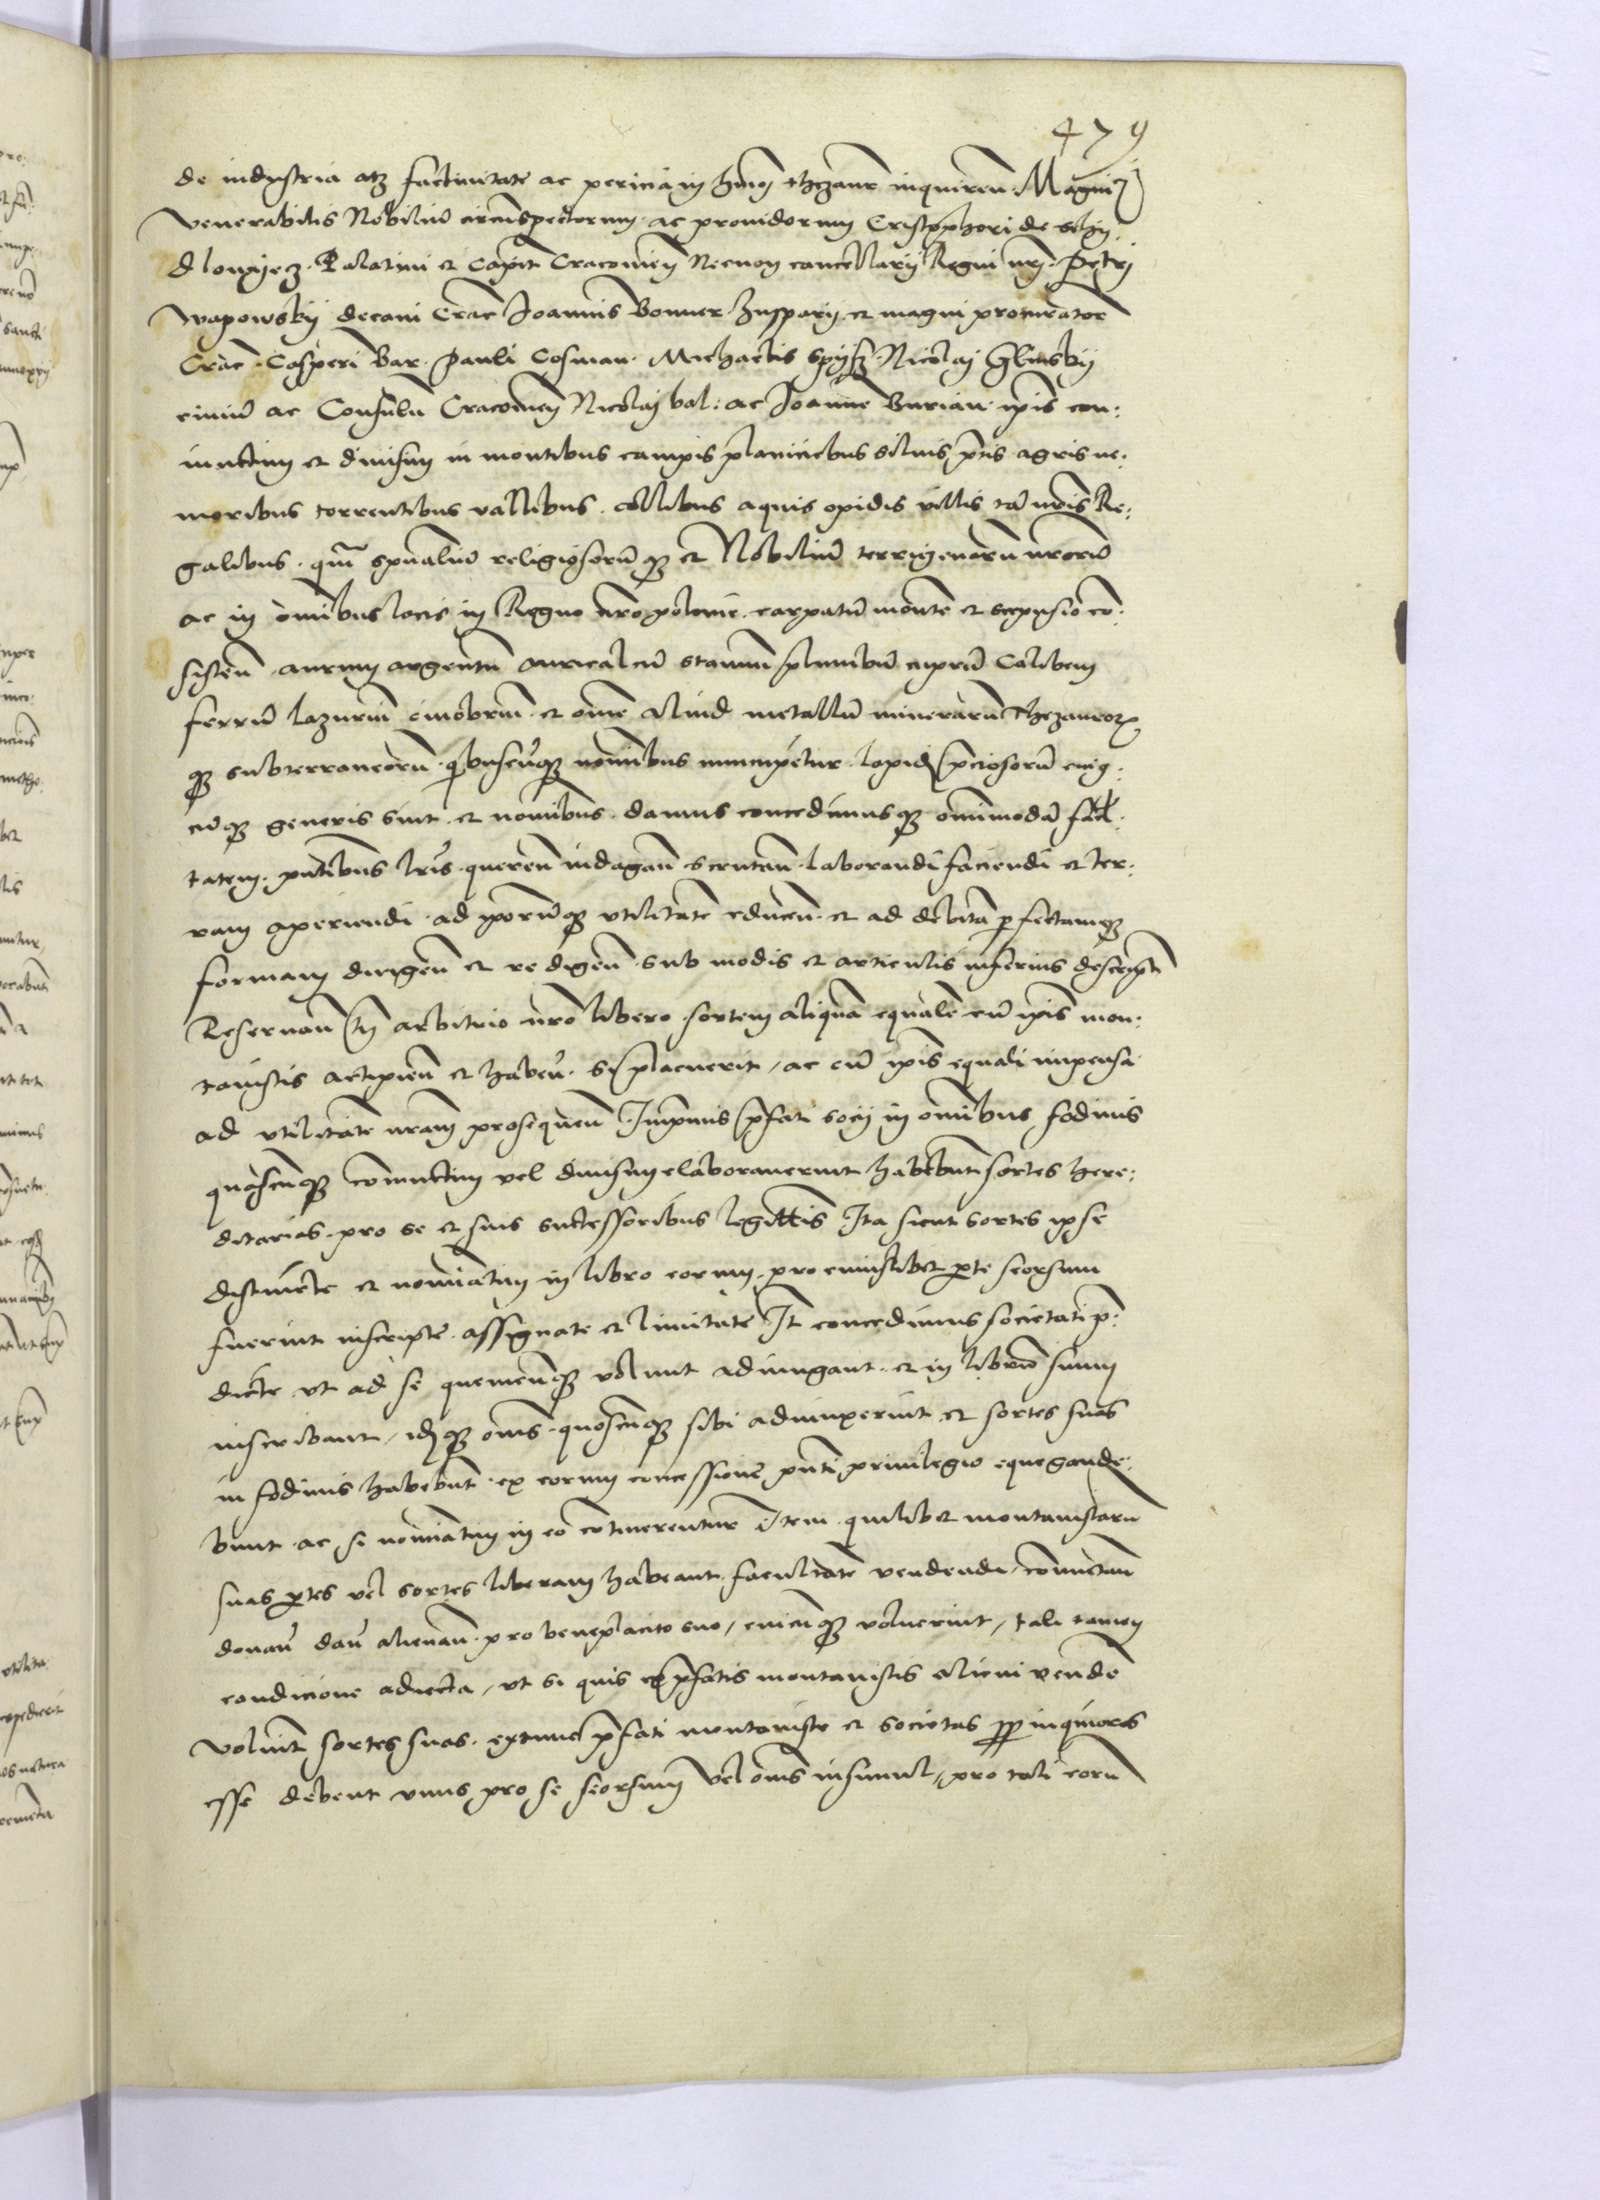 479
de industria atq̃ factivitate ac pericia in hm̃oi thezaur̃ inquiren̄. Magnici
venerabilis Nobiliū circūspectorum ac providorum Cristophori de schy
dlovyecz. Palatini et Capit̃ Cracovien̄ Necnon cancellarij Regni nr̃j. Petrj
Wapowskij decani Crac̃ Joannis Bonner Zupparij et magni procurator̃
Crac̃. Casperi Bar. Pauli Cosman. Michaelis Spysz. Nicolaj Glinskij
civiū ac Consulū Cracovien̄ Nicolaj bal: ac Joanne Burian ip̄is con:
iunctim et divisim in montibus campis planiciebus silvis pr̃tis agris ne:
moribus torrentibus vallibus. collibus aquis opidis villis tā nr̃is Re:
galibus. qm̄ spūaliū religiosorūq̃ et Nobiliū terrigenarū nr̃orū
ac in om̄ibus locis in Regno nr̃o polonie. carpatū monte et scepusio cō:
sisten̄ aurum argentū auricalcū stannū plumbū cuprū Calibem
ferrū lazuriū cinobriū et om̄e aliud metallū minerarū thezauror̃
q̃ subterraneorū quibuscūq̃ nominibus nuncupetur. lapidū p̄ciosorū cuiq:
cūq̃ generis sint et nominibus. damus concedimusq̃ omnimodā facl:
tatem. pn̄tibus lr̃is. queren̄ indagan̄ scrutan̄. laborandi faciendi et ter:
ram aperiendi. ad ip̄orūq̃ utilitatē educen̄ et ad debitā p̄fectamq̃
formam dirigen̄ et redigen̄ sub modis et articulis inferius descript̃
Reservan̄ tn̄ arbitrio nr̃o libero sortem aliquā equalē cū ip̄is mon:
tanistis accipien̄ et haben̄. Si placuerit, ac cū ip̄is equali impensa
ad utilitatē nr̃am prosequen̄ Inprimis p̄fati socij in om̄ibus fodinis
quascūq̃ coniunctim vel divisim elaboraverint habebunt sortes here:
ditarias. pro se et suis successoribus legittis Ita sicut sortes ipse
distincte et nominatim in libro eorum. pro cuiuslibet p̄te seorsum
fuerint inscripte. assignate et limitate It̃ concedimus societati p̄:
dicte vt ad se quemcūq̃ volunt adiungant. et in librū suum
inscribant, idq̃ om̄s. quoscūq̃ sibi adiunxerint et sortes suas
in fodinis habebunt. ex eorum concessione pn̄ti privilegio eque gaude:
bunt. ac si nominatim in eo cōtinerentur Item quilibet montanistarū
suas p̄tes vel sortes liberam habeant. facultatē vendendi, comutan̄
donan̄ dan̄ alienan̄. pro beneplacito suo, cuicūq̃ voluerint, tali tamen
condicione adiecta, vt si quis ex p̄fatis montanistis alicui vende
voluit sortes suas. extunc p̄fati montaniste et societas propinquiores
esse debent unus pro se seorsum vel om̄s insimul, pro tali eorū